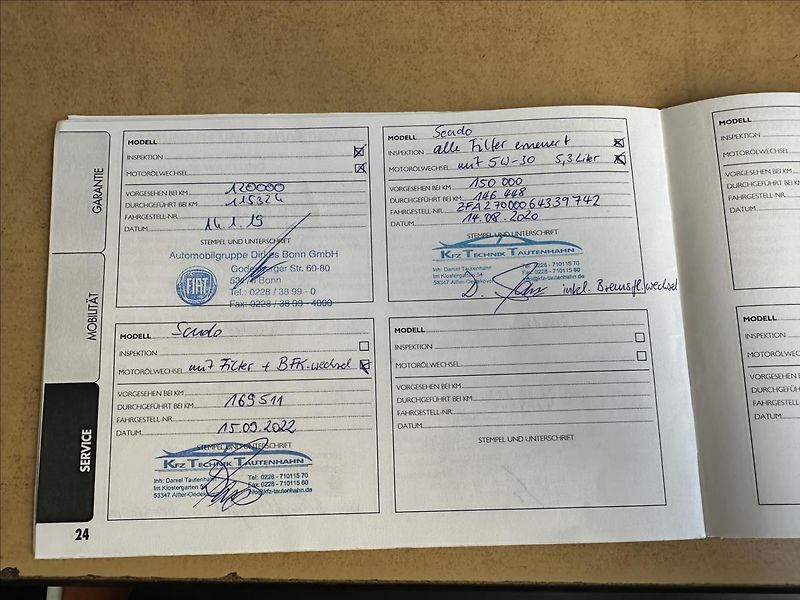 GARANTIE
MOBILITÄT
SERVICE
24
MODELL
INSPEKTION
MOTORÖLWECHSEL
VORGESEHEN BEI KM 120000
DURCHGEFÜHRT BEI KM 115324
FAHRGESTELL-NR.
DATUM 14.1.19
STEMPEL UND UNTERSCHRIFT
Automobilgruppe Dirkes Bonn GmbH
Godesberger Str. 60-80
Bonn
Tel.: 0228 / 38 99 - 0
Fax: 0228 / 38 99 - 4000
FIAT
MODELL Scudo
INSPEKTION alle Filter erneuert
MOTORÖLWECHSEL mit 5W-30 5,3 Liter
VORGESEHEN BEI KM 150 000
DURCHGEFÜHRT BEI KM 146 448
FAHRGESTELL-NR. ZFA27000064339742
DATUM 14.08.2020
STEMPEL UND UNTERSCHRIFT
KFZ TECHNIK TAUTENHAHN
Inh: Daniel Tautenhahn
Im Klostergarten 54
53347 Alfter-Oedekoven
Tel: 0228 - 710115 70
Fax: 0228 - 710115 60
info@kfz-tautenhahn.de
inkl. Bremsfl.wechsel
MODELL Scudo
INSPEKTION
MOTORÖLWECHSEL mit Filter + BFK-wechsel
VORGESEHEN BEI KM
DURCHGEFÜHRT BEI KM 169511
FAHRGESTELL-NR.
DATUM 15.09.2022
STEMPEL UND UNTERSCHRIFT
KFZ TECHNIK TAUTENHAHN
Inh: Daniel Tautenhahn
Im Klostergarten 54
53347 Alfter-Oedekoven
Tel: 0228 - 710115 70
Fax: 0228 - 710115 60
info@kfz-tautenhahn.de
MODELL
INSPEKTION
MOTORÖLWECHSEL
VORGESEHEN BEI KM
DURCHGEFÜHRT BEI KM
FAHRGESTELL-NR.
DATUM
STEMPEL UND UNTERSCHRIFT
MODELL
INSPEKTION
MOTORÖLWECHSEL
VORGESEHEN BEI
DURCHGEFÜHRT
FAHRGESTELL-NR.
DATUM
MODELL
INSPEKTION
MOTORÖLWECHS
VORGESEHEN
DURCHGEFÜH
FAHRGESTELL
DATUM